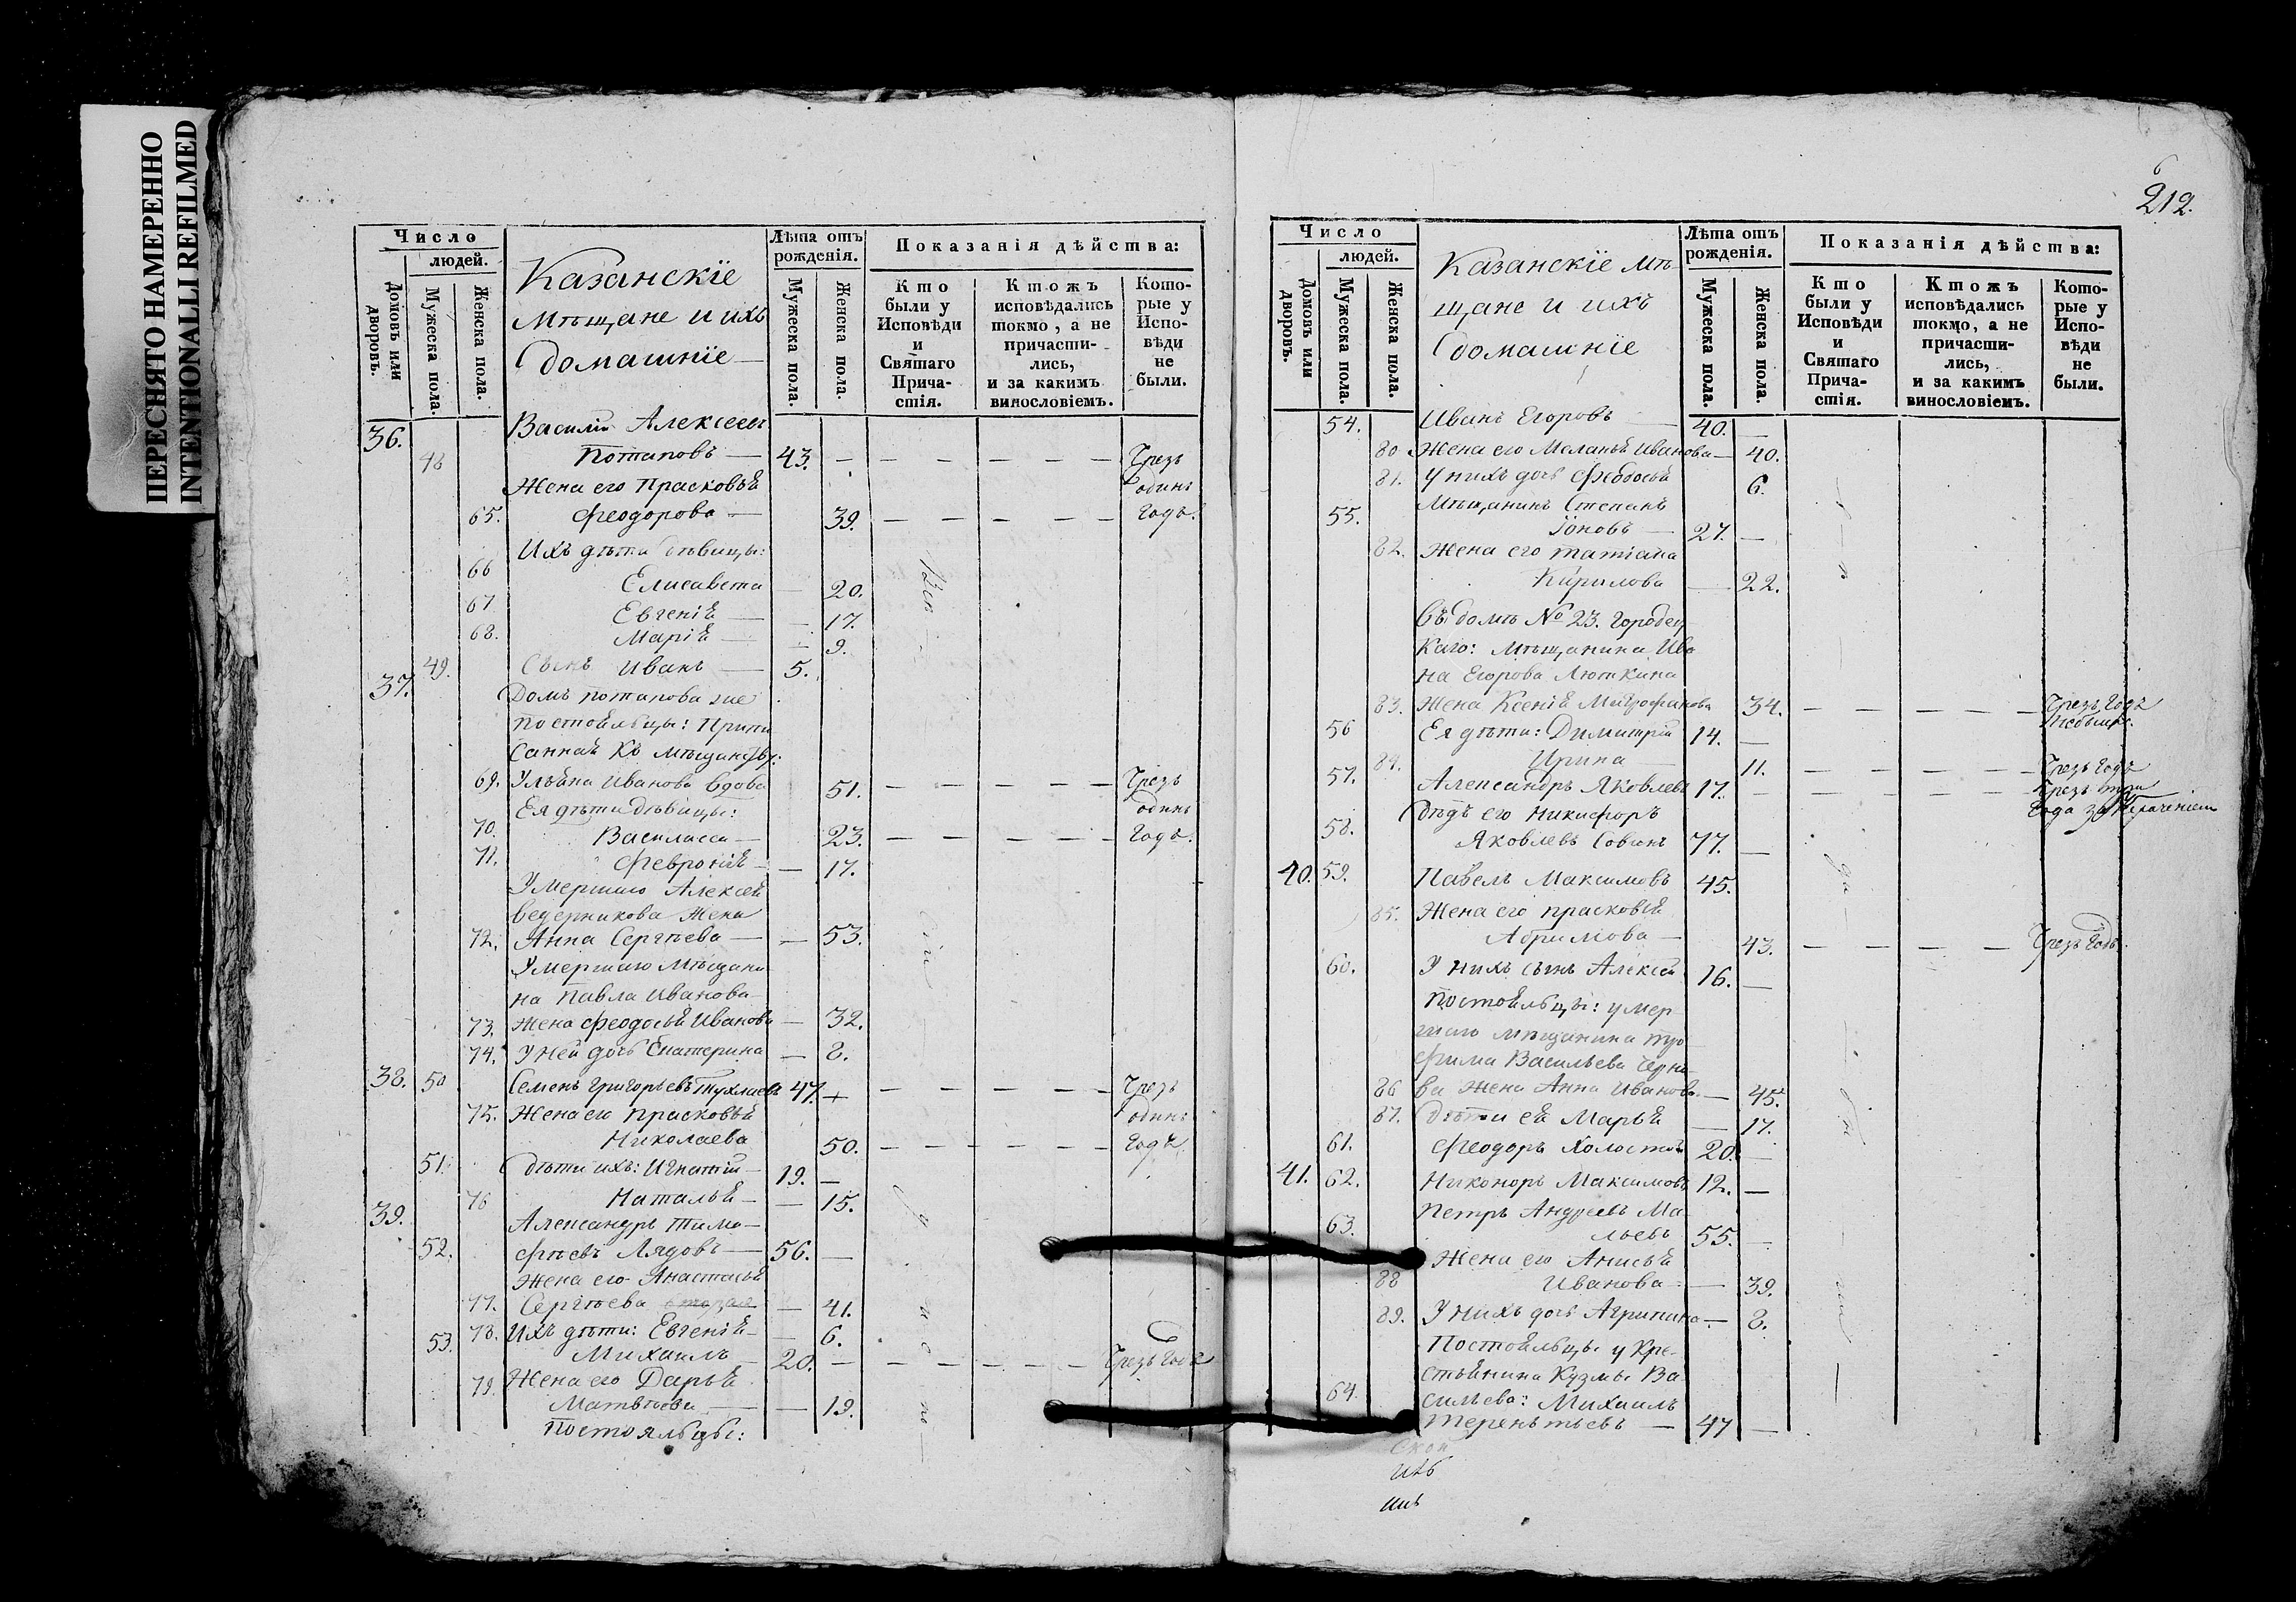 ПЕРЕСНЯТО НАМЕРЕННО
INTENTIONALLI REFILMED
Число
людей.
Домовъ или дворовъ.
Мужеска пола.
Женска пола.
Казанскіе
Мѣщане и ихъ
домашніе
Лѣта отъ рожденія.
Мужеска пола.
Женска пола.
Показанія дѣйства:
Кто были у Исповѣди и Святаго Причастія.
Ктожъ исповѣдались токмо, а не причастились, и за какимъ винословіемъ.
Которые у Исповѣди не были.
36. Василій Алексеевъ
48 Потаповъ — 43. — — — — — — Чрезъ
Жена его Прасковья одинъ
65. Феодорова — 39. — — — — Годъ.
Ихъ дѣти девицы:
66 Елисавета — 20.
67 Евгенія — — 17.
68. Марія — — 9.
49. Сынъ Иванъ — 5.
37. Домъ потапова
постояльцы: Припи
санная къ мѣщанству:
69. Ульяна Иванова вдова 51. — — — — Чрезъ
Ея дѣти дѣвицы: одинъ
70. Василисса — 23. — — — — Годъ.
71. Февронія — — 17.
Умершаго Алексея
Ведерникова Жена
72. Анна Сергѣева — — 53.
Умершаго Мѣщани
на Павла Иванова
73. Жена Феодосья Иванова — 32.
74. У ней дочь Екатерина — 8.
38. 50 Семенъ Григорьевъ 47. + — — — — — Чрезъ
75. Жена его Прасковья одинъ
Николаева 50. — — — — — Годъ
51. Дѣти ихъ: Игнатій — 19. —
76 Наталья — — 15.
39. Александръ Тимо—
52. фѣевъ Лядовъ — 56. —
Жена его Анастасья
77. Сергѣева — 41.
78. Ихъ дѣти: Евгенія — — 6.
53. Михаилъ — 20. — — — — — — Чрезъ Годъ
79. Жена его Дарья
Матвѣева — — 19.
Постояльцы:
6
212.
Число
людей.
Домовъ или дворовъ.
Мужеска пола.
Женска пола.
Казанскіе мѣ
щане и ихъ
домашніе
Лѣта отъ рожденія.
Мужеска пола.
Женска пола.
Показанія дѣйства:
Кто были у Исповѣди и Святаго Причастія.
Ктожъ исповѣдались токмо, а не причастились, и за какимъ винословіемъ.
Которые у Исповѣди не были.
54. Иванъ Егоровъ — 40. —
80 Жена его Меланья Иванова — 40.
81. У нихъ дочь Феодосья 6.
55. Мѣщанинъ Степанъ
Іоновъ — 27. —
82. Жена его Татіана
Кирилова — 22.
Въ домѣ № 23. Городец
каго: Мѣщанина Ива
на Егорова Люткина
83. Жена Ксенія Митрофанова 34. — — — — Чрезъ Годъ
56 Ея дѣти: Димитрій 14. —
84. Ирина — 11. — — — — Чрезъ Годъ
57. Александръ Яковлевъ 17. — — — — — Чрезъ три
года за
58. Дѣдъ его Никифоръ
Яковлевъ Совинъ 77. —
40. 59. Павелъ Максимовъ 45.
85. Жена его Прасковья
Абрамова — 43. — — — — Чрезъ Годъ.
60. У нихъ сынъ Алексей 16. —
Постояльцы: умер
шаго мѣщанина Тро
фима Васильева Черно
86 ва Жена Анна Иванов. — 45.
87. Дѣти ея Марья — 17.
61. Феодоръ Холостой 20. —
41. 62. Никоноръ Максимовъ 12. —
63. Петръ Андреевъ Ма
льевъ 55. —
Жена его Анисья
88 Иванова — — 39.
89. У нихъ дочь Агрипина — 8.
Постояльцы у Кре
стьянина Кузмы Ва
64. сильева: Михаилъ
Терентьевъ — 47 —